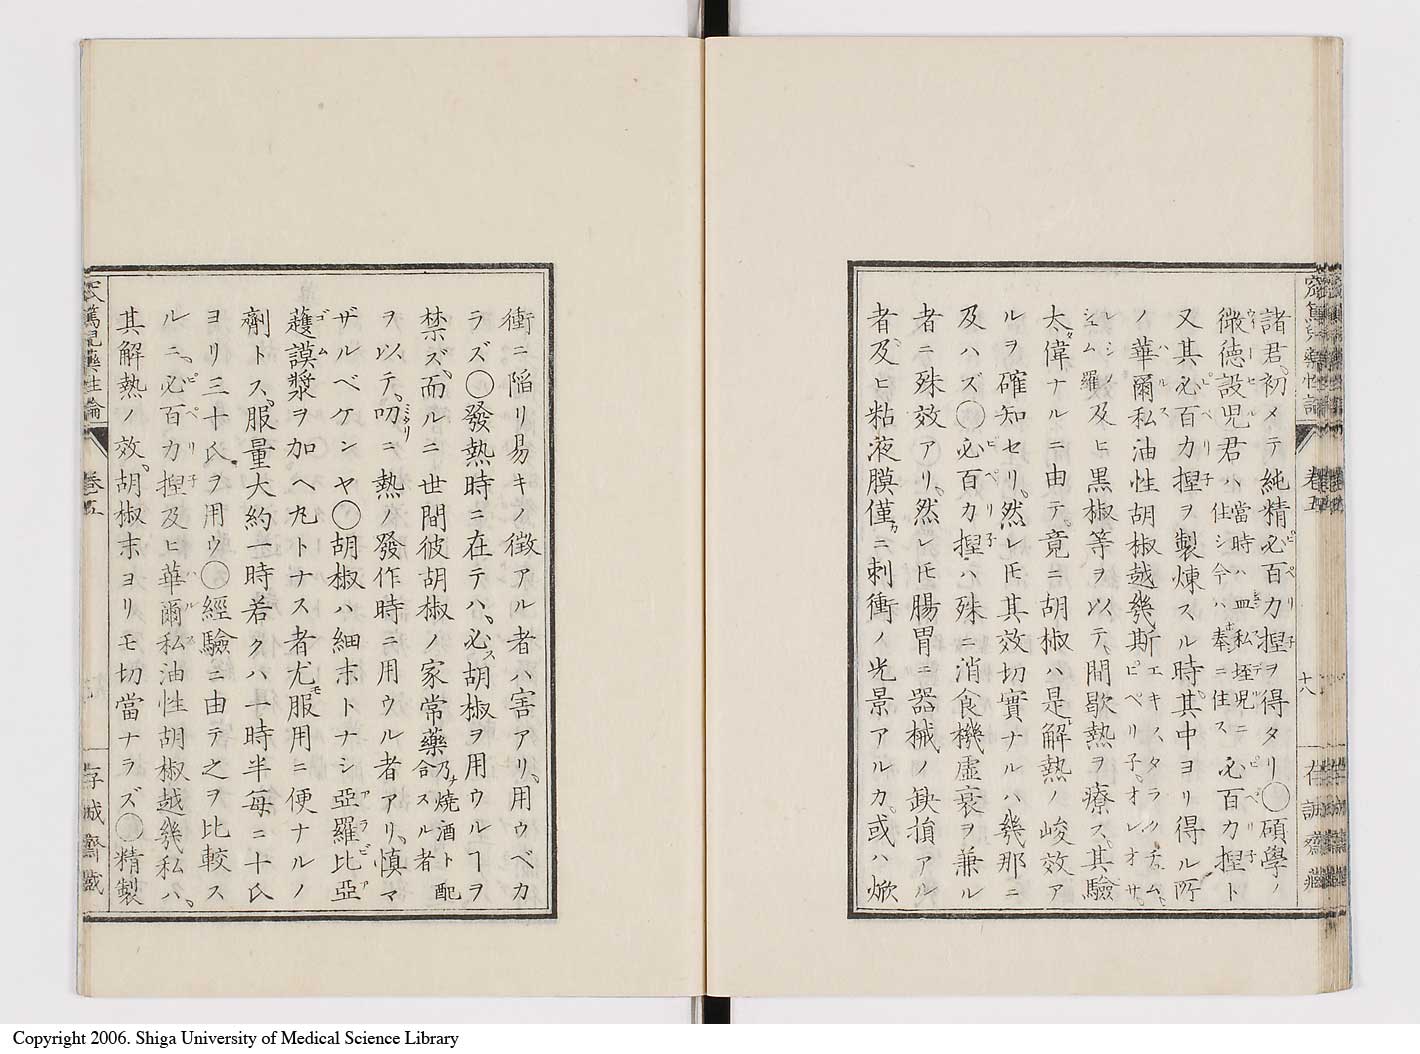 諸君、初メテ純精必百力捏ヲ得タリ◯碩學ノ
微徳設児君ハ當時ハ血私蛭児ニ住シ今ハ奉ニ住ス必百力捏ト
又其必百力捏ヲ製煉スル時、其中ヨリ得ル所
ノ華爾私油性胡椒越幾斯エキスタラクチュム、ピペリ子、オレオサ、
レシノシュム羅及ヒ黒椒等ヲ以テ、間歇熱ヲ療ス、其驗
太タ偉ナルニ由テ、竟ニ胡椒ハ是レ解熱ノ峻效ア
ルヲ確知セリ、然レ𪜈其效切實ナルハ幾那ニ
及ハズ◯必百力捏ハ殊ニ消食機虚衰ヲ兼ル
者ニ殊效アリ、然レ𪜈腸胃ニ器械ノ缺損アル
者、及ヒ粘液膜僅カニ刺衝ノ光景アルカ、或ハ焮
衝ニ陥リ易キノ徴アル者ハ害アリ、用ウベカ
ラズ◯發熱時ニ在テハ、必ス胡椒ヲ用ウルヿヲ
禁ズ、而ルニ世間彼胡椒ノ家常藥乃チ燒酒ト配合スル者
ヲ以テ、叨ニ熱ノ發作時ニ用ウル者アリ、慎マ
ザルベケンヤ◯胡椒ハ細末トナシ亞羅比亞
護謨漿ヲ加ヘ丸トナス者尤モ服用ニ便ナルノ
劑トス、服量大約一時若クハ一時半毎ニ十氏
ヨリ三十氏ヲ用ウ◯經驗ニ由テ之ヲ比較ス
ルニ、必百力捏及ヒ華爾私油性胡椒越幾私ハ、
其解熱ノ效、胡椒末ヨリモ切當ナラズ◯精製
篤児藥性論 卷五
十八
存誠齋藏
Copyright 2006. Shiga University of Medical Science Library